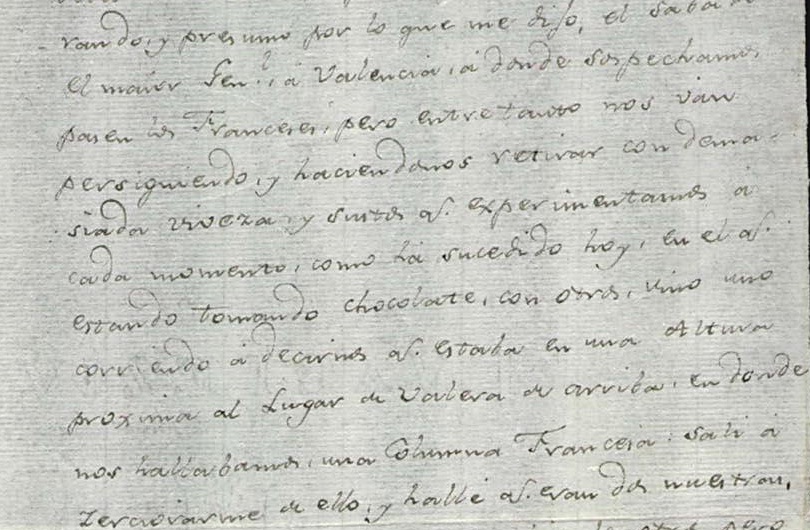 rando, y presumo por lo que me dijo, el saba
el maior Gen.l, á Valencia, á donde sospechamos,
pasen los Franceses, pero entretanto nos van
persiguiendo, y haciendonos retirar con dema-
siada viveza, y sustos qe. experimentamos á
cada momento, como há sucedido hoy, en el qe.
estando tomando chocolate, con otros, vino uno
corriendo á decirnos qe. estaba en una Altura
proxima al Lugar de Valera de arriba, en donde
nos hallabamos, una Columna Francesa: salí á
zerciorarme de ello, y hallé qe. eran dos nuestras,
pero